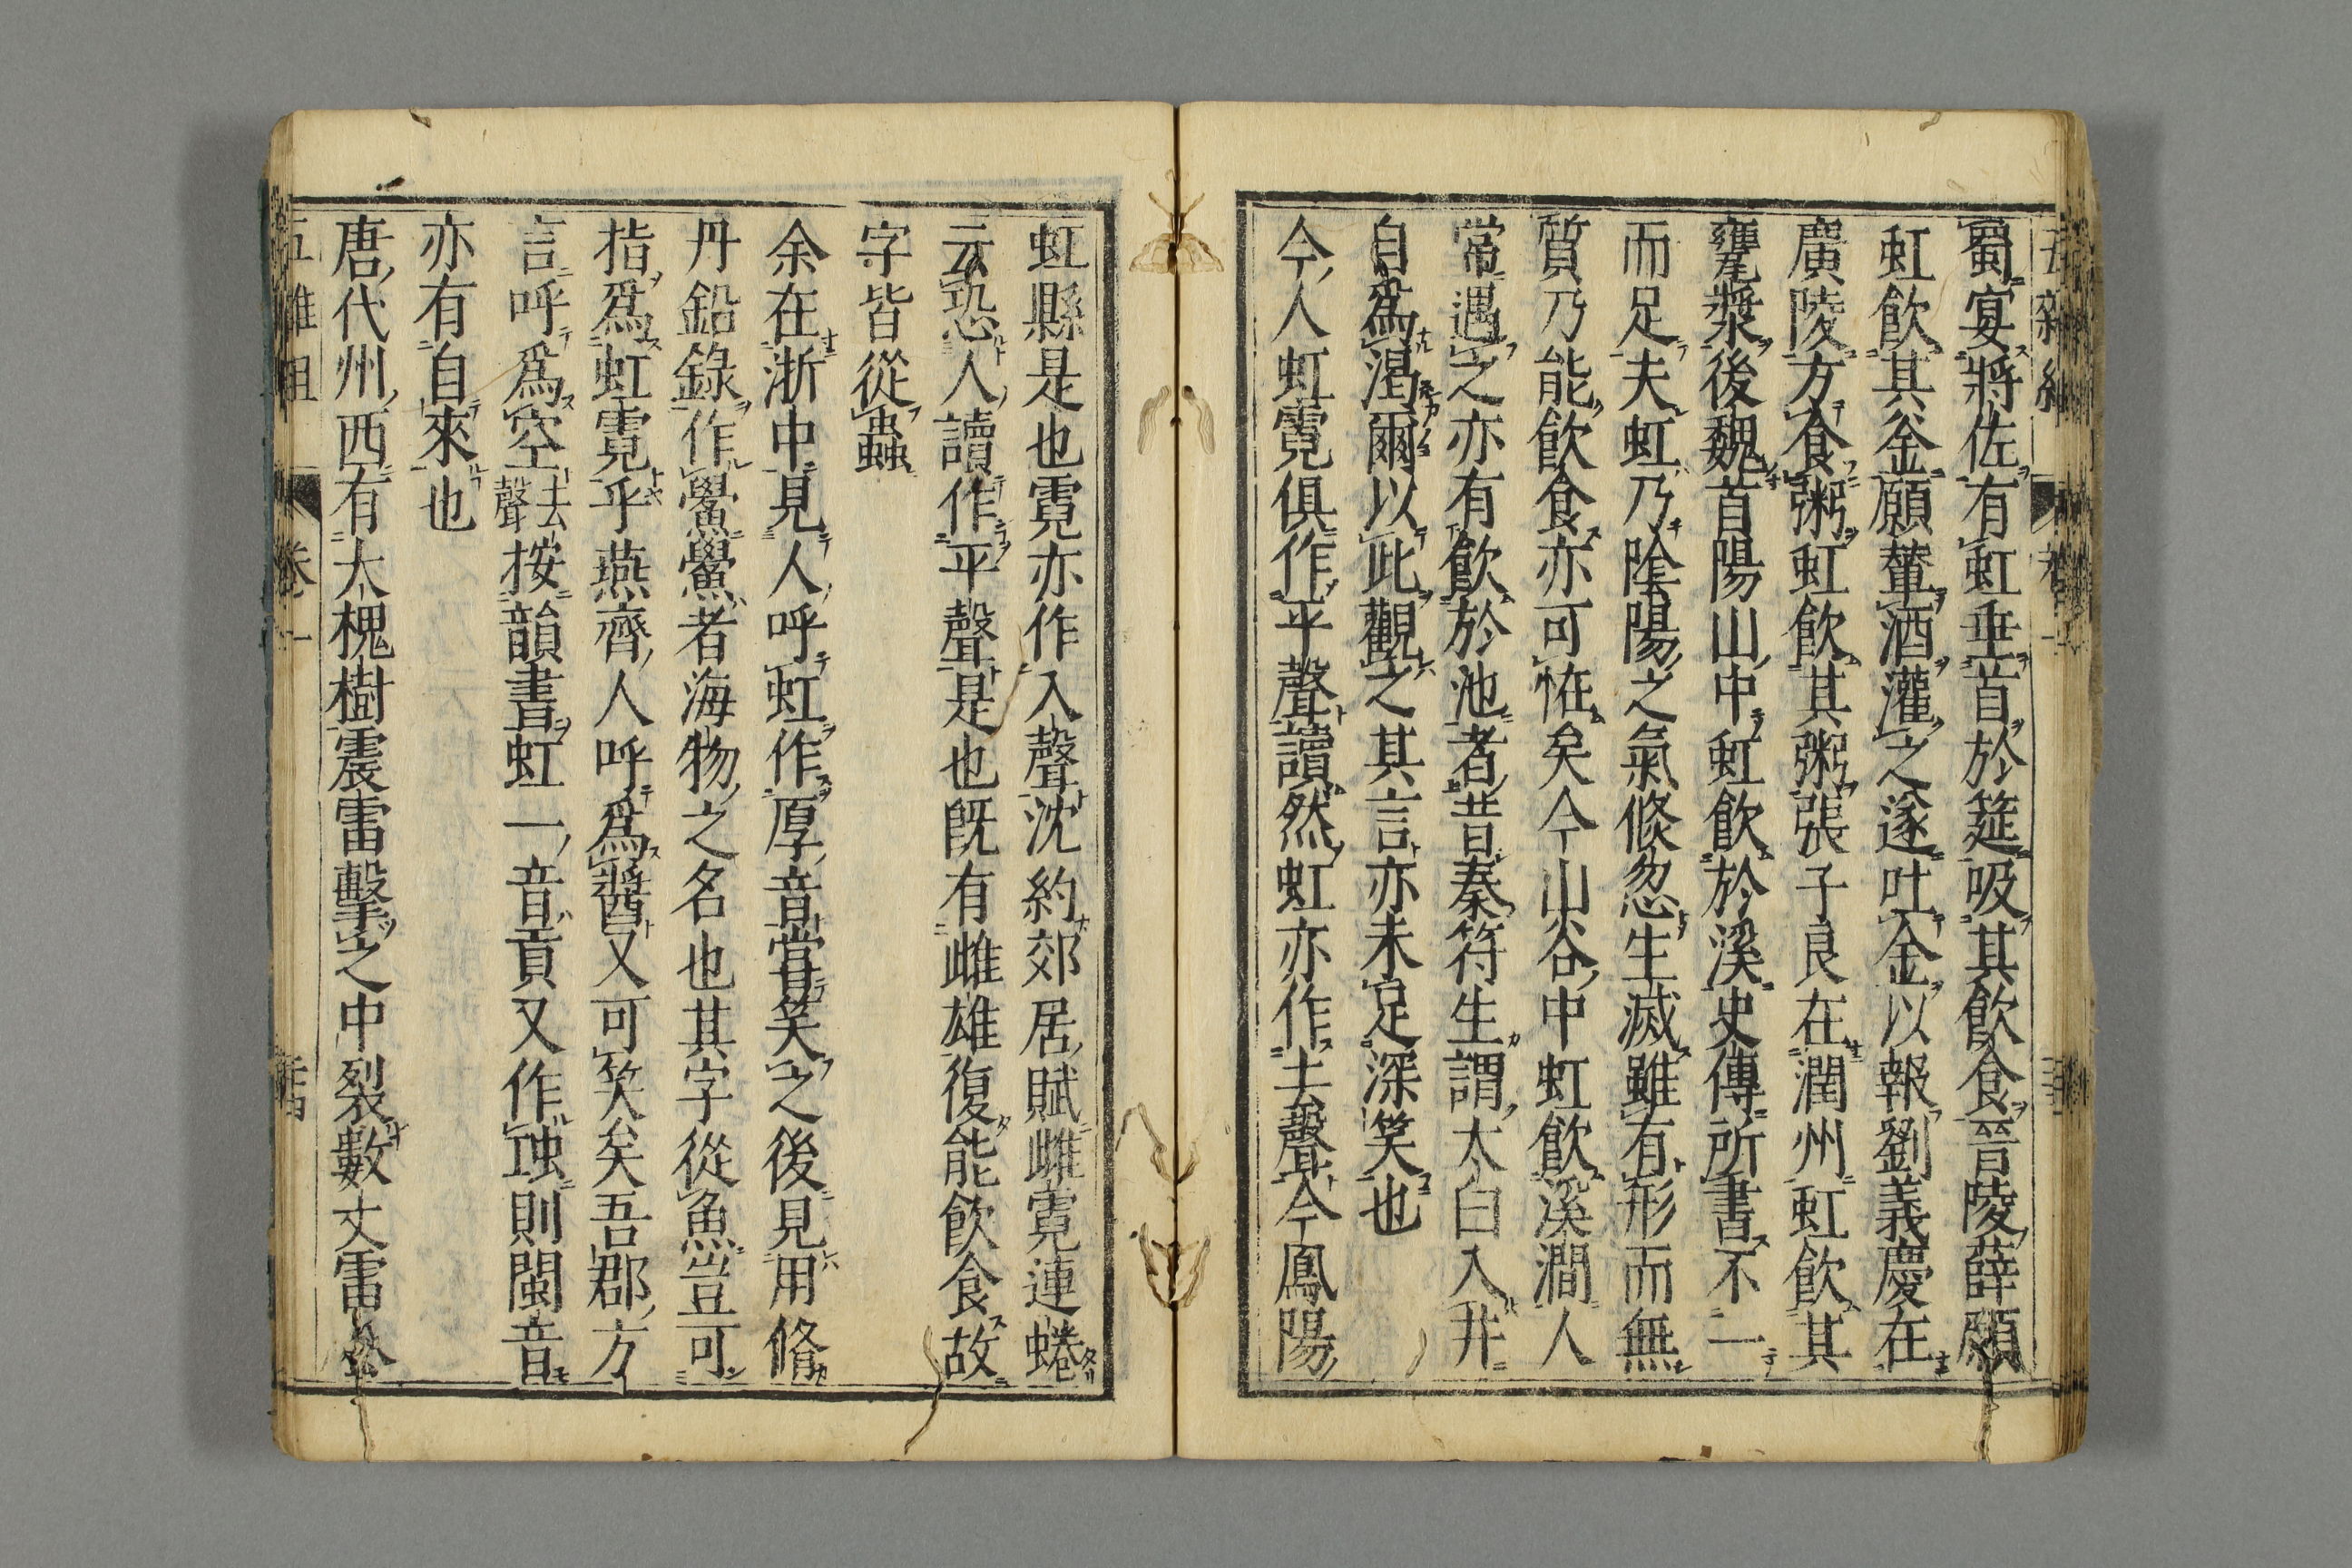 蜀宴將佐有虹垂首於筵吸其飲食晉陵薛願
虹飲其釜願輦酒灌之遂吐金以報劉義慶在
廣陵方食粥虹飲其粥張子良在潤州虹飲其
甕漿後魏首陽山中虹飲於溪史傳所書不一
而足夫虹乃陰陽之氣倐忽生滅雖有形而無
質乃能飲食亦可恠矣今山谷中虹飲溪澗人
常遇之亦有飲於池者昔秦符生謂太白入井
自爲渴爾以此觀之其言亦未足深笑也
今人虹霓俱作平聲讀然虹亦作去聲今鳳陽
虹縣是也霓亦作入聲沈約郊居賦雌霓連蜷
云恐人讀作平聲是也旣有雌雄復能飲食故
字皆從蟲
余在浙中見人呼虹作厚音嘗笑之後見用脩
丹鉛錄作鱟鱟者海物之名也其字從魚豈可
指爲虹霓乎燕齊人呼爲醬又可笑矣吾郡方
言呼爲空去聲按韻書虹一音貢又作䖟則閩音
亦有自來也
唐代州西有大槐樹震雷擊之中裂數丈雷公
五雜組 卷一